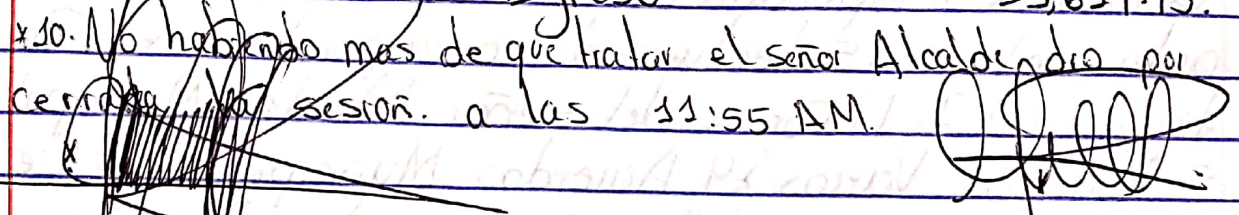 *10. No habiendo mas de que tratar el señor Alcalde dio por
cerrada la sesión. a las 11:55 AM.